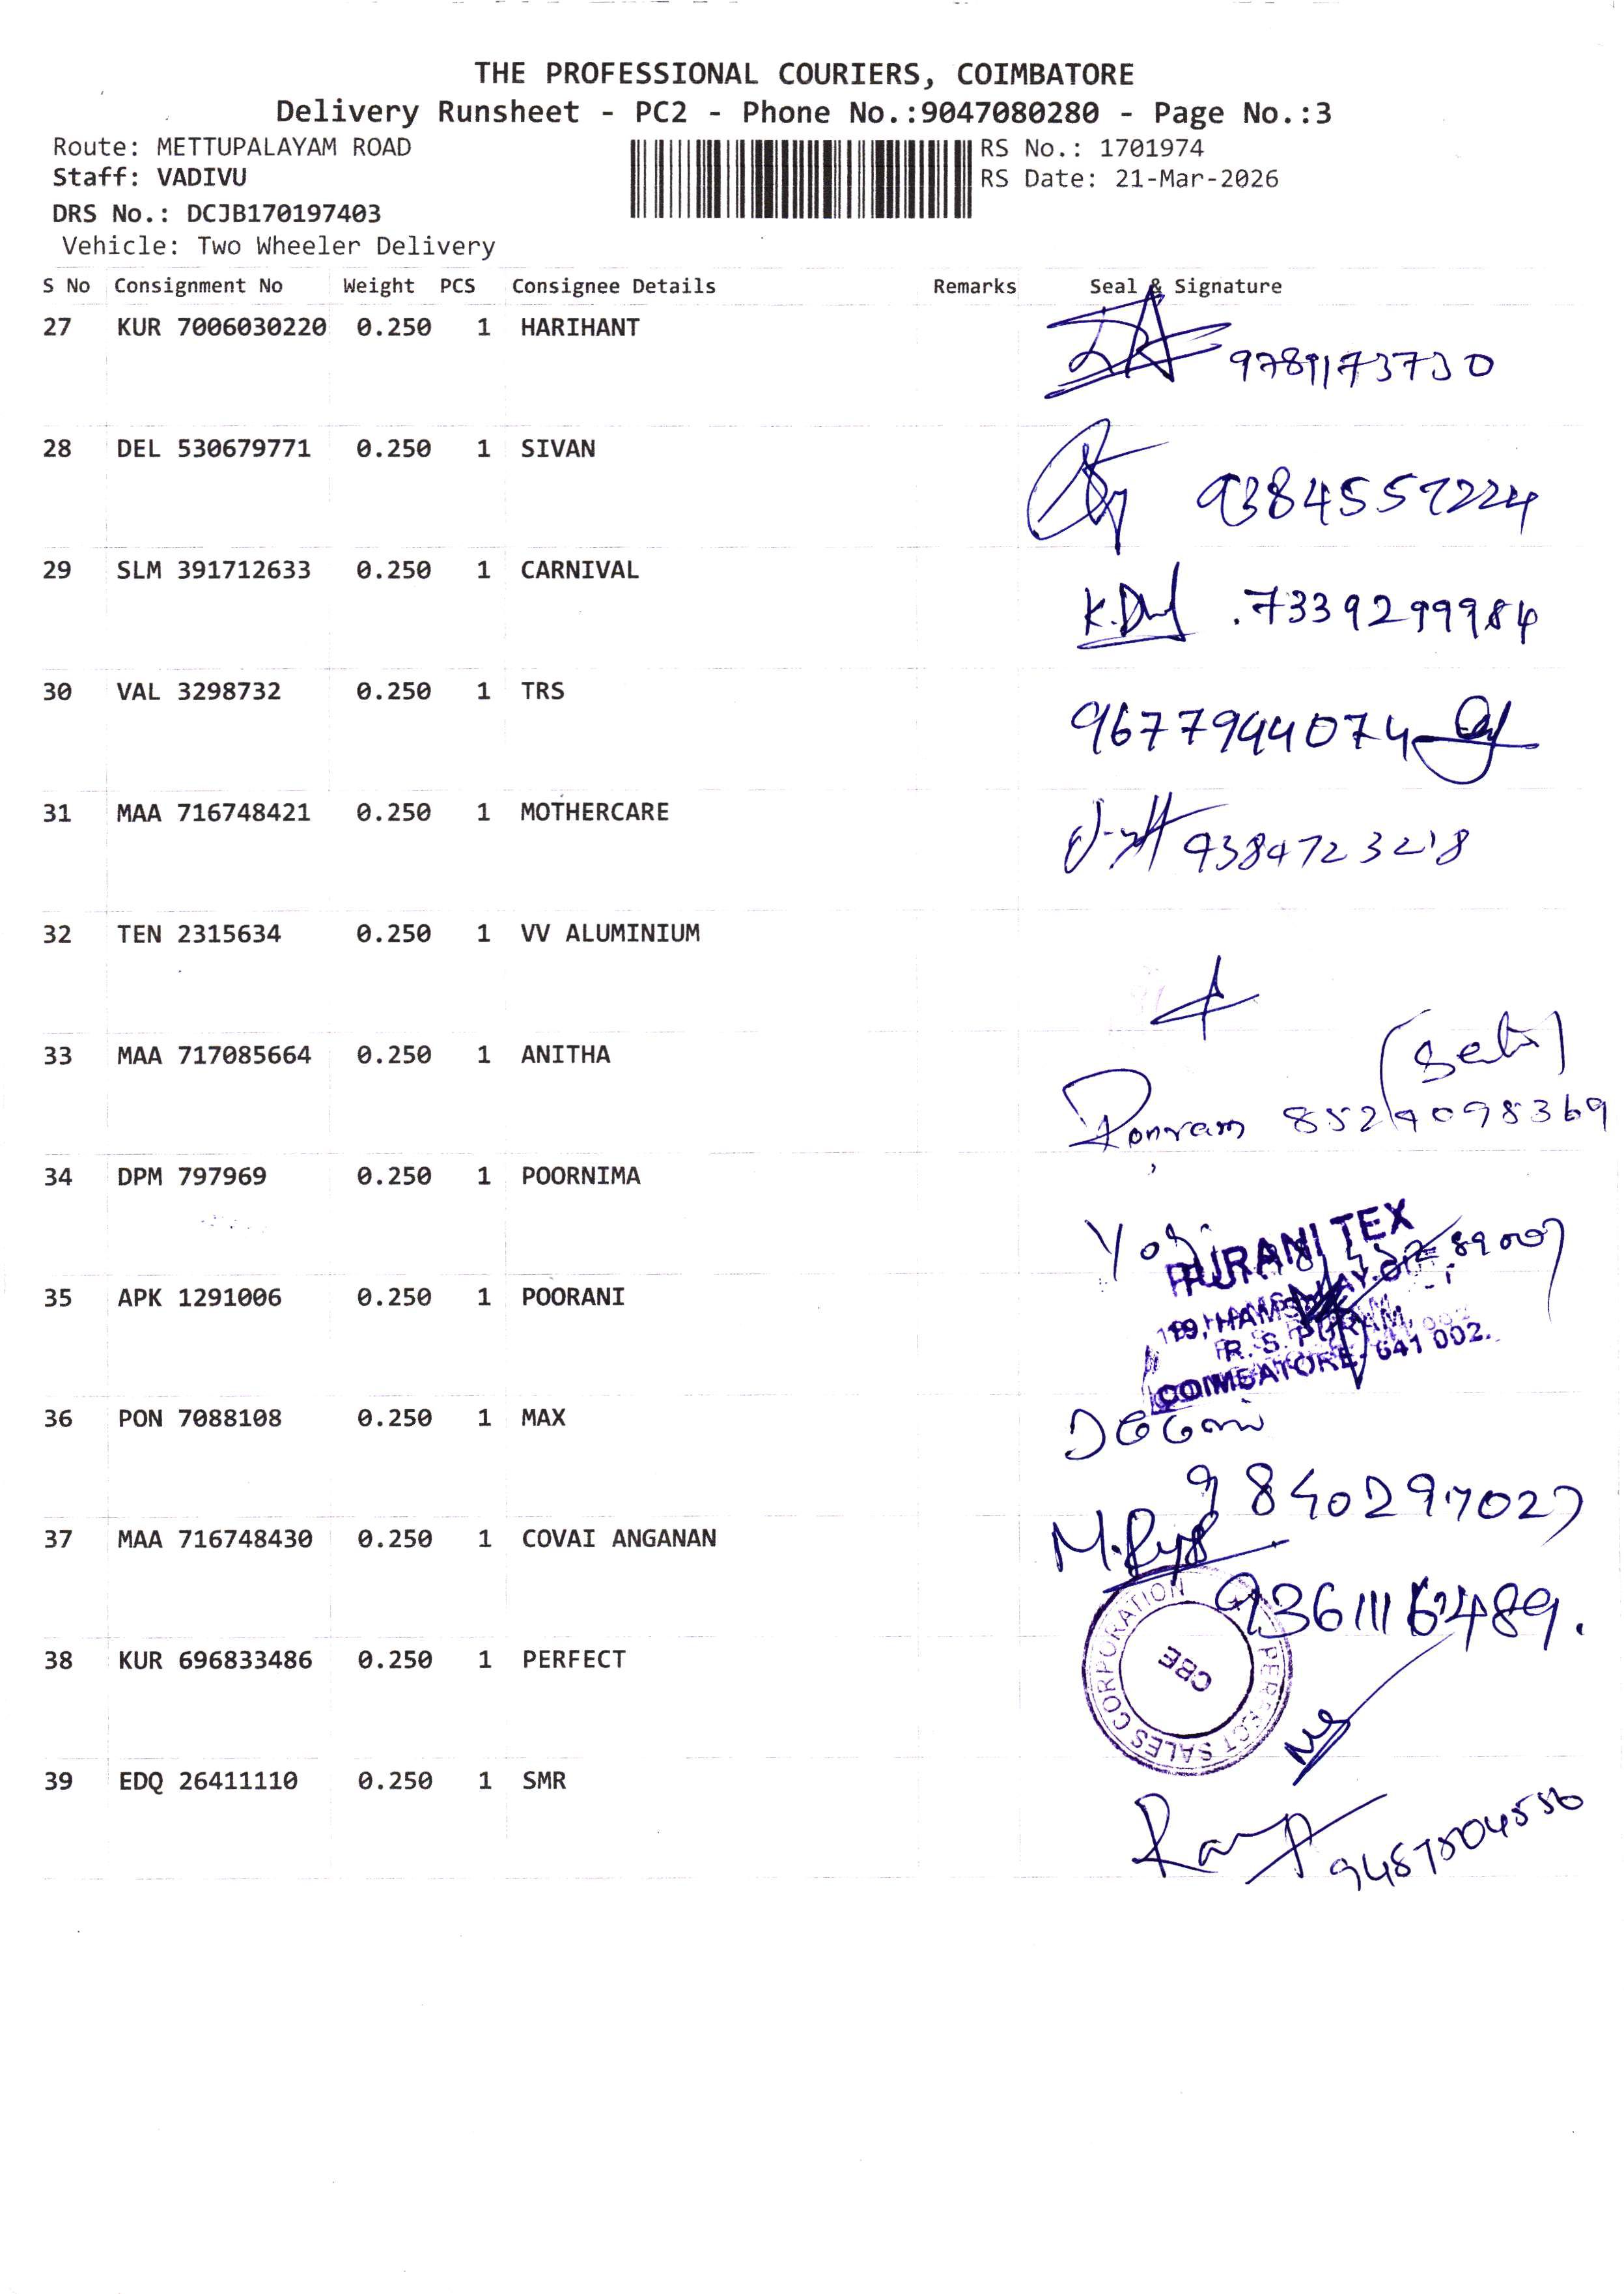 THE PROFESSIONAL COURIERS, COIMBATORE
Delivery Runsheet - PC2 - Phone No.:9047080280 - Page No.:3
Route: METTUPALAYAM ROAD
RS No.: 1701974
Staff: VADIVU
RS Date: 21-Mar-2026
DRS No.: DCJB170197403
Vehicle: Two Wheeler Delivery
S No Consignment No Weight PCS Consignee Details Remarks Seal & Signature
27 KUR 7006030220 0.250 1 HARIHANT
28 DEL 530679771 0.250 1 SIVAN
9384557224
29 SLM 391712633 0.250 1 CARNIVAL
7339299984
30 VAL 3298732 0.250 1 TRS
9677944074
31 MAA 716748421 0.250 1 MOTHERCARE
9384723218
32 TEN 2315634 0.250 1 VV ALUMINIUM
33 MAA 717085664 0.250 1 ANITHA
Ponram 8524098369
34 DPM 797969 0.250 1 POORNIMA
PURANI TEX
35 APK 1291006 0.250 1 POORANI
R.S. PURAM,
COIMBATORE - 641 002.
36 PON 7088108 0.250 1 MAX
9840297027
37 MAA 716748430 0.250 1 COVAI ANGANAN
38 KUR 696833486 0.250 1 PERFECT
PERFECT SALES CORPORATION
CBE
39 EDQ 26411110 0.250 1 SMR